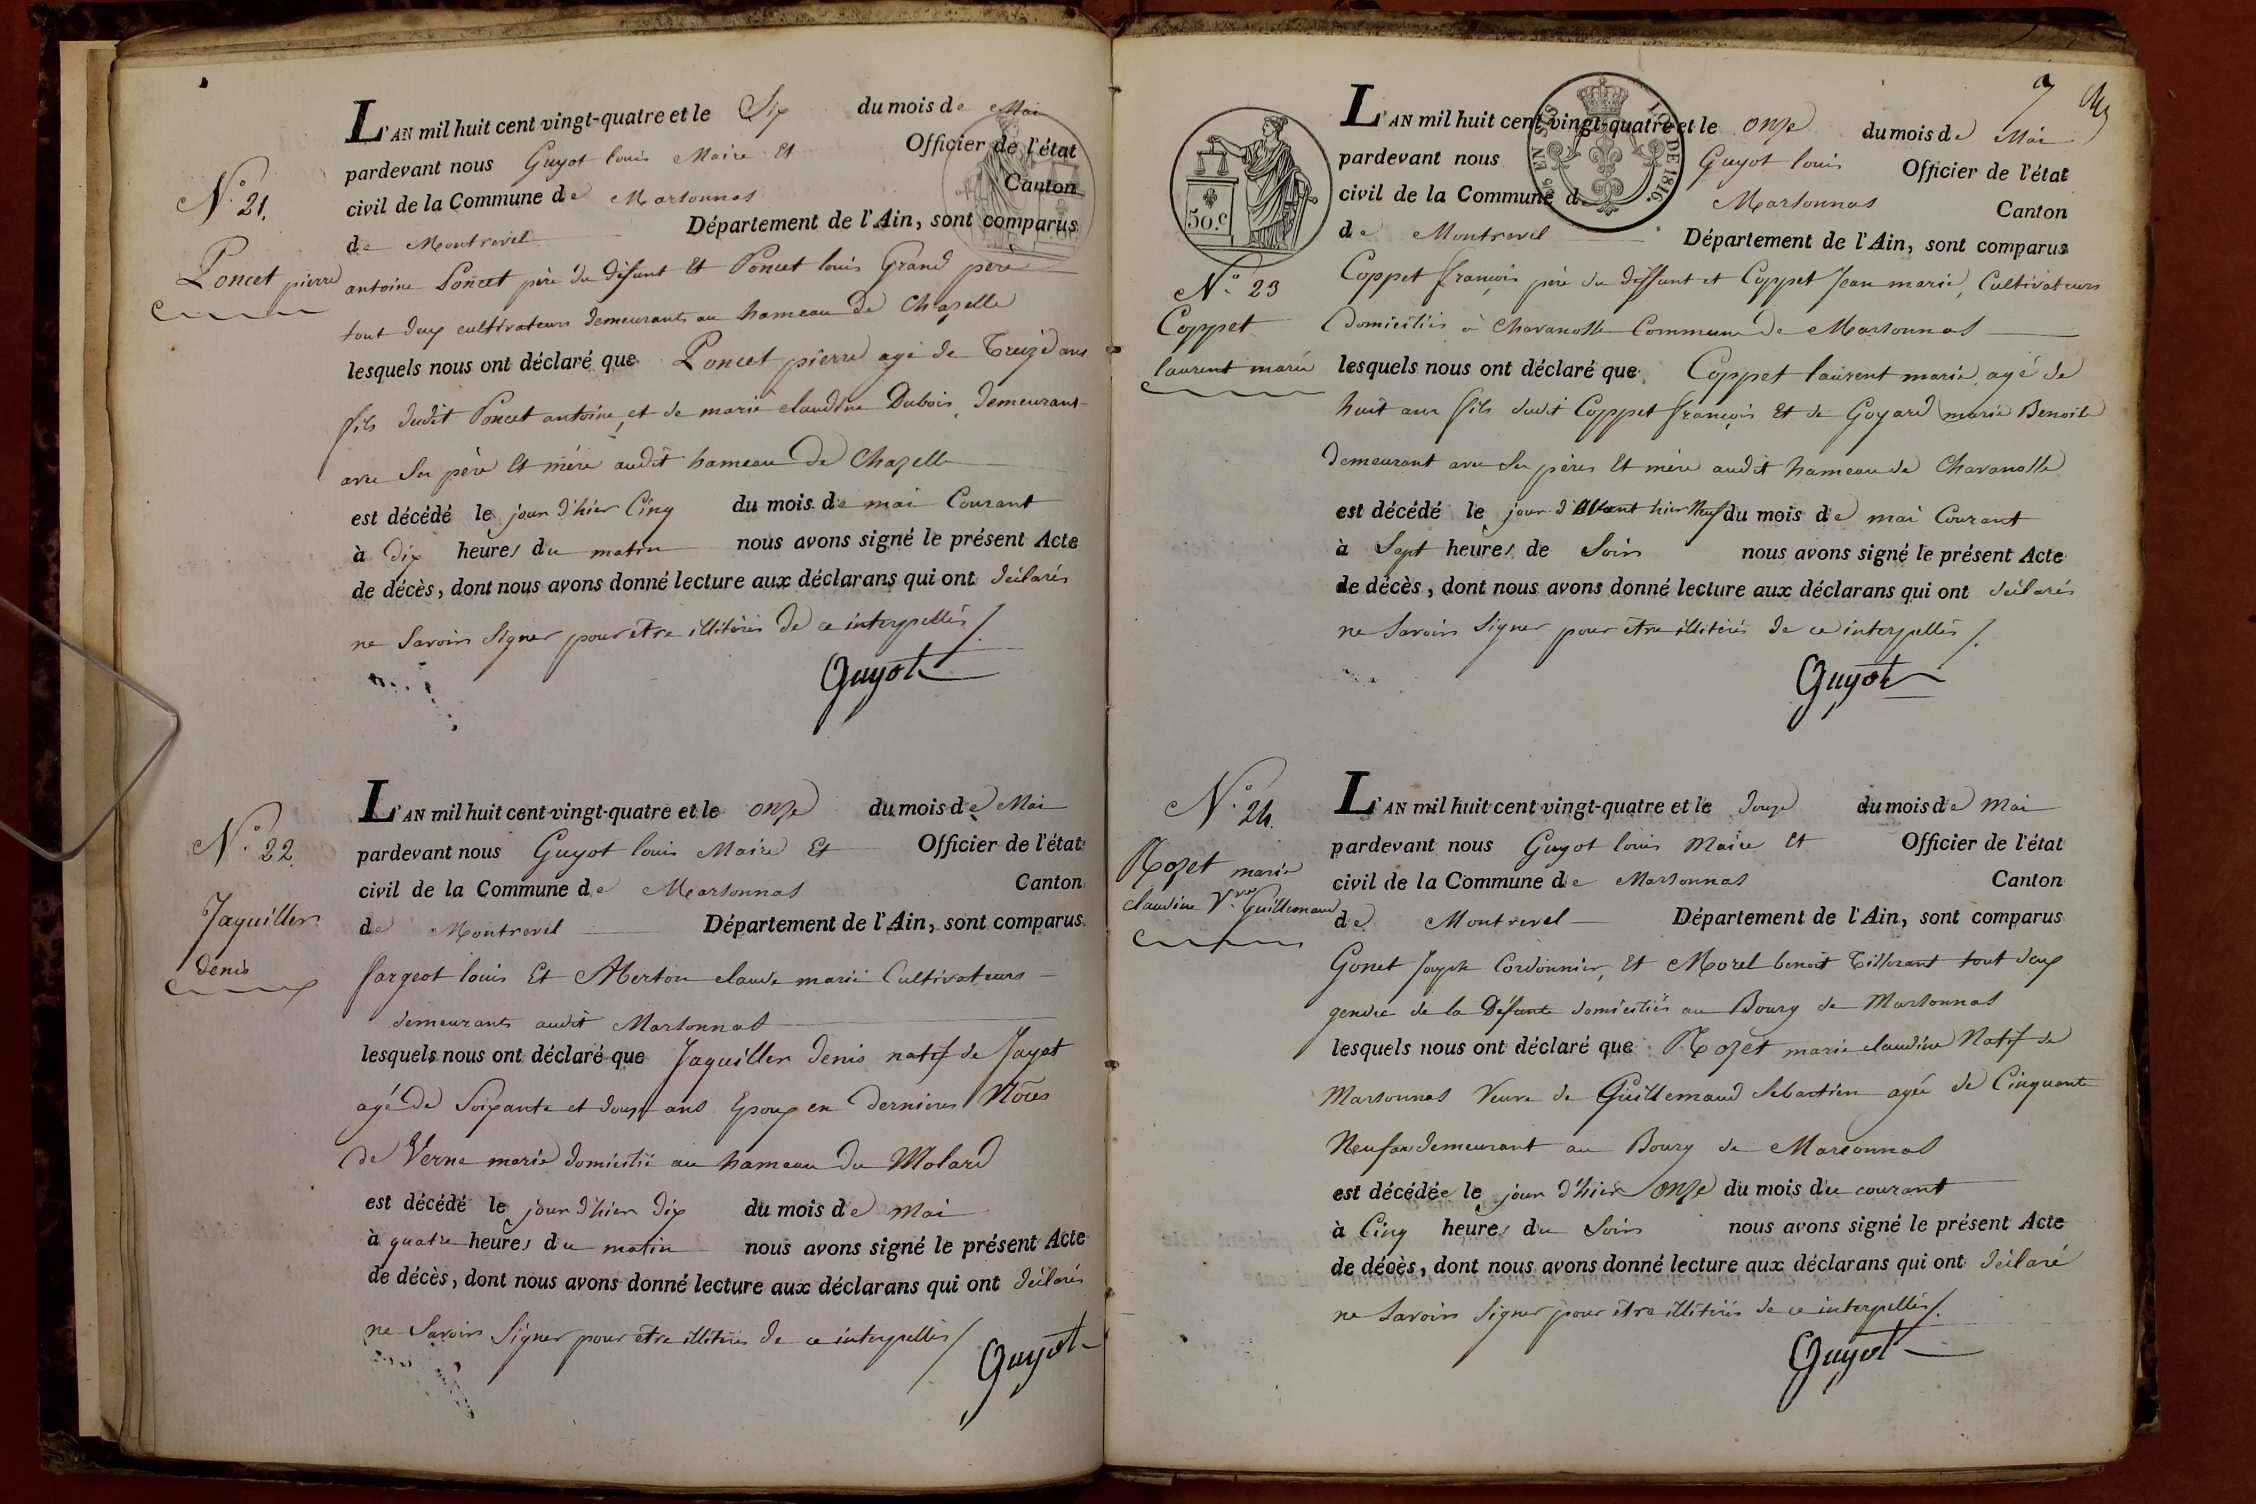 L'AN mil huit cent vingt-quatre et le Six du mois de Mai
pardevant nous Guyot louis Maire Et Officier de l'état
civil de la Commune de Marsonnas Canton
de Montrevel Département de l'Ain, sont comparus
N.° 21.
Poncet pierre
antoine Poncet père du défunt Et Poncet louis Grand père
tout deux cultivateurs demeurants au hameau de Chapelle
lesquels nous ont déclaré que Poncet pierre agé de Treize ans
fils dudit Poncet antoine, et de marie claudine Dubois, demeurant
avec Ses père Et mère audit hameau de Chapelle
est décédé le jour d'hier Cinq du mois de mai Courant
à dix heures du matin nous avons signé le présent Acte
de décès, dont nous avons donné lecture aux déclarans qui ont déclarés
ne Savoirs Signer pour être illitérés de ce interpellés /
Guyot
L'AN mil huit cent vingt-quatre et le onze du mois de Mai
pardevant nous Guyot louis Maire Et Officier de l'état
civil de la Commune de Marsonnas Canton
de Montrevel Département de l'Ain, sont comparus
N.° 22.
Jaquiller
denis
fargeot louis Et Aberton claude marie Cultivateurs
demeurants audit Marsonnas
lesquels nous ont déclaré que Jaquiller denis natif de Jayat
agé de Soixante et douze ans Epoux en dernieres Nôces
de Verne marie domicilié au hameau du Molard
est décédé le jour d'hier dix du mois de Mai
à quatre heures du matin nous avons signé le présent Acte
de décès, dont nous avons donné lecture aux déclarans qui ont déclarés
ne Savoirs Signer pour être illitérés de ce interpellés /
Guyot
7
TIMB. DE 1816.
50.c
L'AN mil huit cent vingt-quatre et le onze du mois de Mai
pardevant nous Guyot louis Officier de l'état
civil de la Commune de Marsonnas Canton
de Montrevel Département de l'Ain, sont comparus
N.° 23
Coppet
laurent marie
Coppet françois père du deffunt et Coppet Jean marie, Cultivateurs
Domiciliés à Chavanosse Commune de Marsonnas
lesquels nous ont déclaré que Coppet laurent marie agé de
huit ans fils dudit Coppet françois Et de Goyard marie Benoite
demeurant avec Ses pères Et mère audit hameau de Chavanosse
est décédé le jour d'avant hier Neuf du mois de mai Courant
à Sept heures de Soirs nous avons signé le présent Acte
de décès, dont nous avons donné lecture aux déclarans qui ont déclarés
ne Savoirs Signer pour être illitérés de ce interpellés /.
Guyot
L'AN mil huit cent vingt-quatre et le douze du mois de Mai
pardevant nous Guyot louis Maire Et Officier de l'état
civil de la Commune de Marsonnas Canton
de Montrevel Département de l'Ain, sont comparus
N.° 24.
Rozet marie
claudine V.ve Guillemaud
Gonet Joseph Cordonnier, Et Morel benoit Tisserant tout deux
gendre de la Défunte domiciliés au Bourg de Marsonnas
lesquels nous ont déclaré que Rozet marie claudine Natif de
Marsonnas Veuve de Guillemaud Sebastien agée de Cinquante
Neuf ans demeurant au Bourg de Marsonnas
est décédée le jour d'hier onze du mois du courant
à Cinq heures du Soirs nous avons signé le présent Acte
de décès, dont nous avons donné lecture aux déclarans qui ont déclaré
ne Savoirs Signer pour être illitérés de ce interpellés /.
Guyot